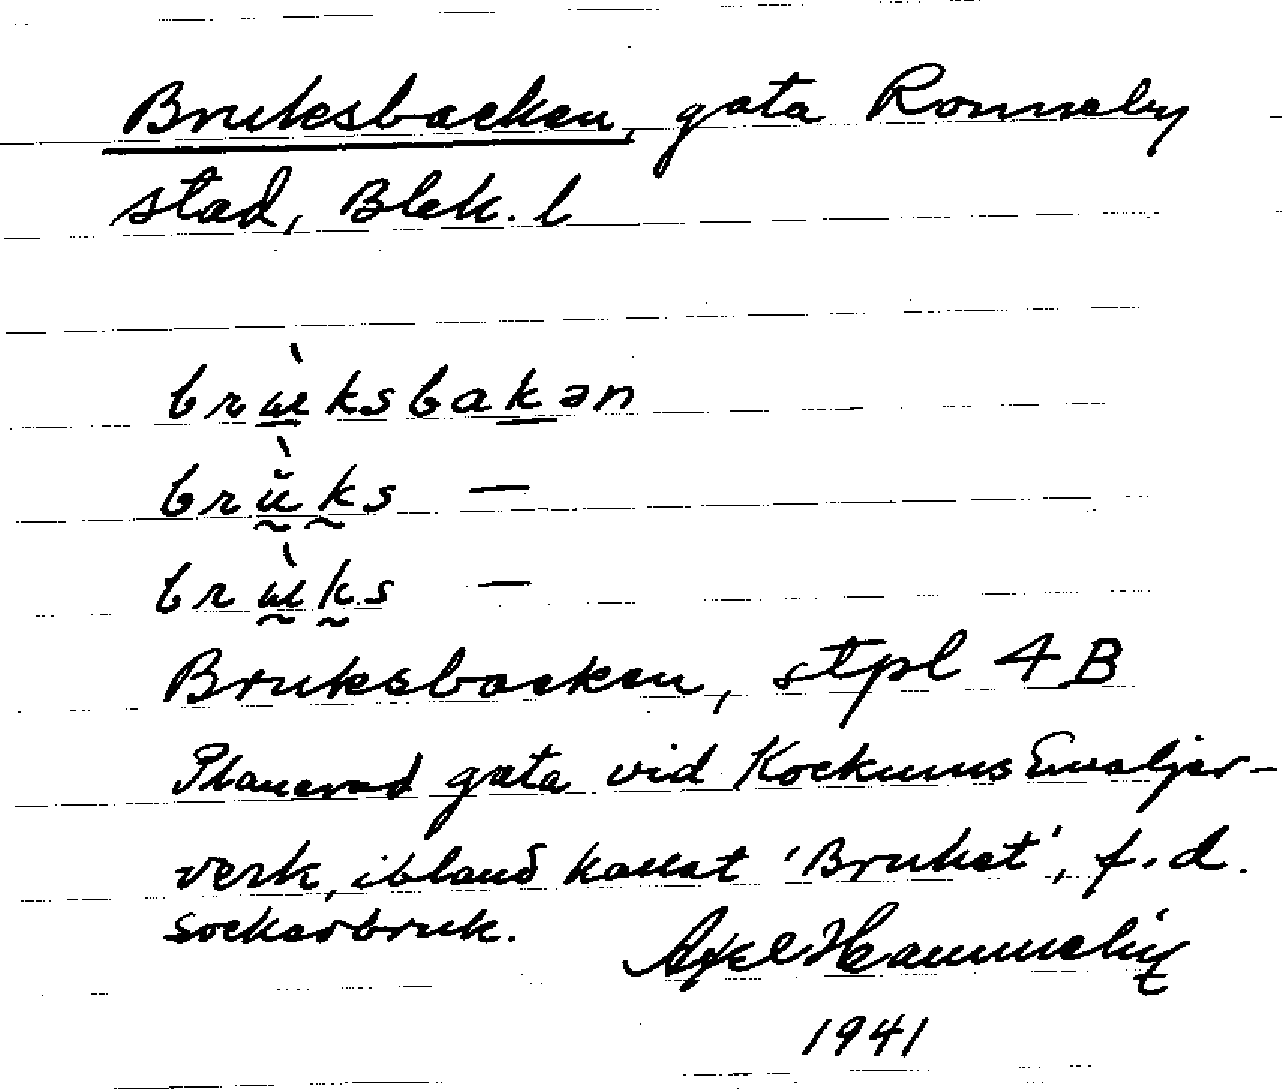 Bruksbacken, gata Ronneby
stad, Blek. l
brɯ̀ksbakən
brŭ̀ks —
brɯ̀ks —
Bruksbacken, stpl 4B
Planerad gata vid Kockums Emaljer-
verk, ibland kallat 'Bruket', f.d.
sockerbruk.
Axel Hammelij
1941